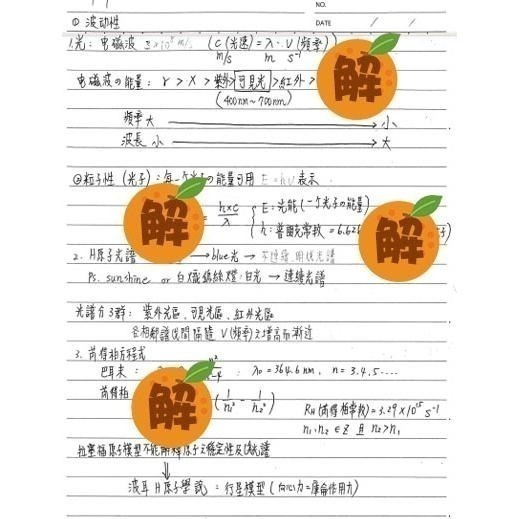 NO.
DATE / /
① 波动性
1.光：电磁波 3×10⁸ m/s (C(光速)=λ·ν(頻率)
m/s m s⁻¹
电磁波の能量：γ > X > 紫外> 可見光 >紅外 >
(400nm~700nm)
頻率 大 → 小
波長 小 → 大
②粒子性 (光子)：每一个光子の能量可用 E=hν 表示
解 解 解 解
= h×c/λ { E：光能(一个光子の能量)
h：普朗克常數 = 6.626 子)
2. H原子光譜 → blue光 → 不連續.明線光譜
Ps. sunshine or 白熾鎢絲燈:白光 → 連續光譜
光譜分3群： 紫外光區、可見光區、紅外光區
各相鄰譜线間隔隨 ν(頻率)之增高而漸近
3. 芮得柏方程式
巴耳末： n²/ -4 ； λ₀=364.6nm, n=3.4.5....
芮得柏 (1/n₁² - 1/n₂²)
R_H(芮得柏常數)=3.29×10¹⁵ s⁻¹
n₁.n₂ ∈ Z 且 n₂>n₁
拉塞福原子模型不能解釋原子之穩定性及 光譜
⇓
波耳 H原子學說：行星模型 (向心力=庫侖作用力)